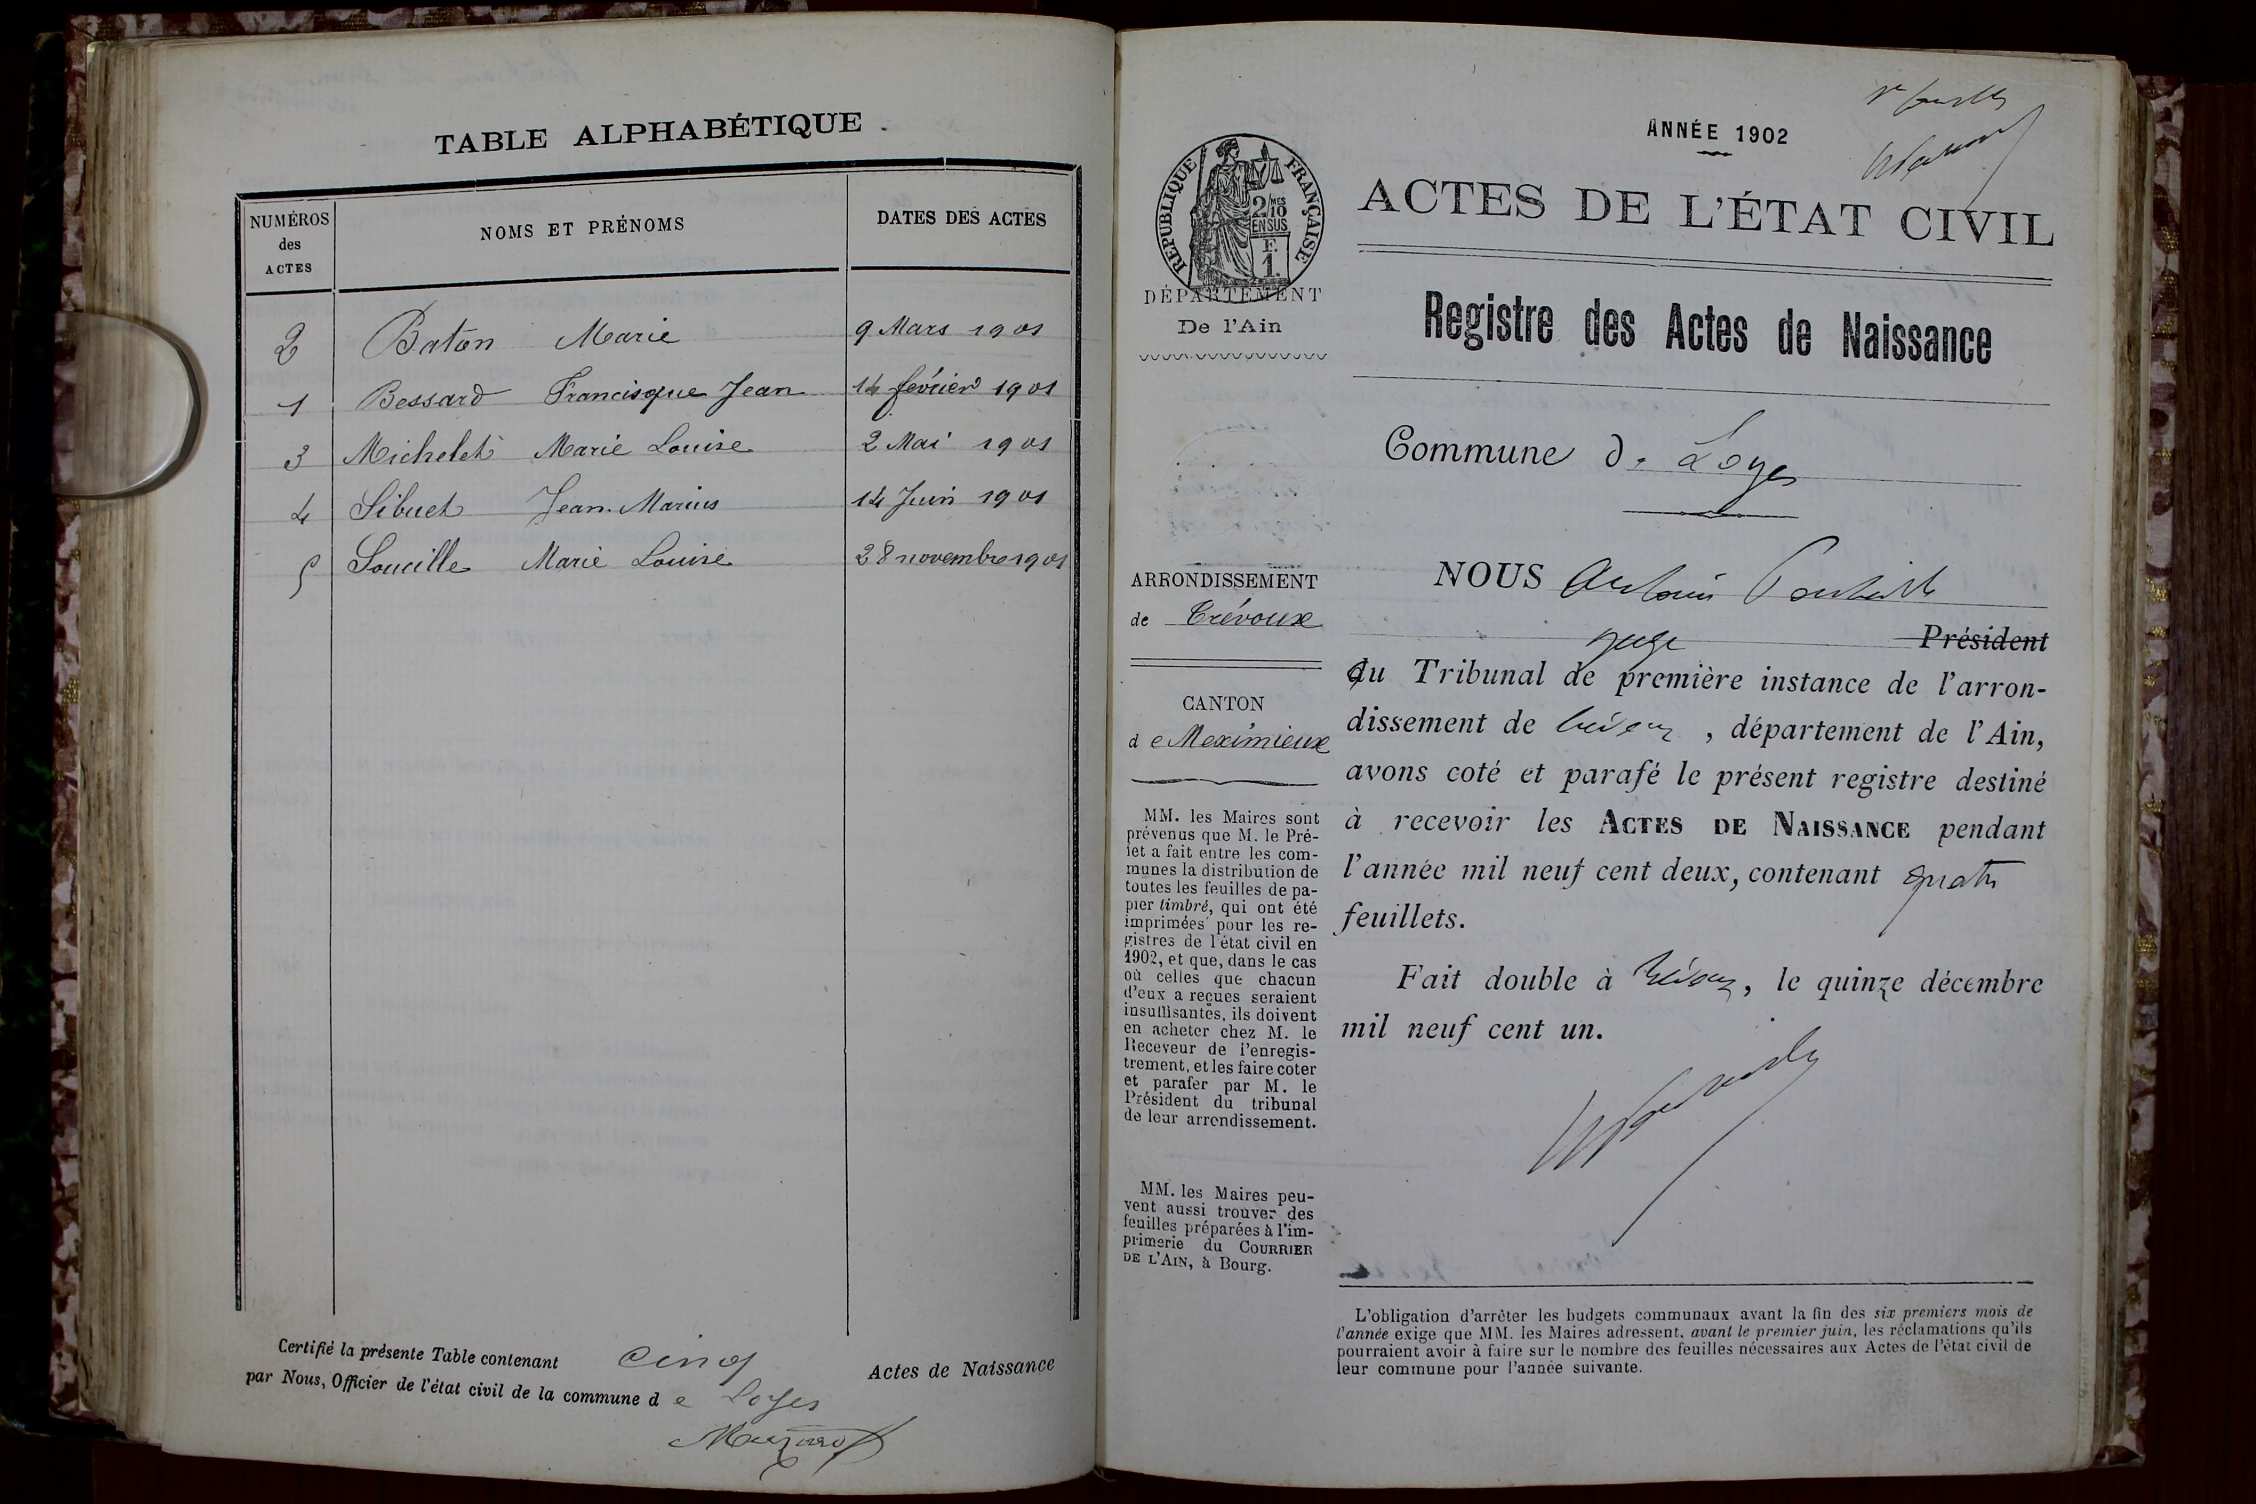 TABLE ALPHABÉTIQUE
NUMÉROS des ACTES
NOMS ET PRÉNOMS
DATES DES ACTES
2 Baton Marie 9 Mars 1901
1 Bessard Francisque Jean 14 février 1901
3 Michelet Marie Louise 2 Mai 1901
4 Sibuet Jean Marius 14 Juin 1901
5 Soucille Marie Louise 28 novembre 1901
Certifié la présente Table contenant cinq Actes de Naissance
par Nous, Officier de l'état civil de la commune de Loyes
ANNÉE 1902
RÉPUBLIQUE FRANÇAISE
2/10 MES
EN SUS
F.
1.
ACTES DE L'ÉTAT CIVIL
DÉPARTEMENT
De l'Ain
Registre des Actes de Naissance
Commune d. Loyes
ARRONDISSEMENT
de Trévoux
CANTON
de Meximieux
MM. les Maires sont
prévenus que M. le Pré-
fet a fait entre les com-
munes la distribution de
toutes les feuilles de pa-
pier timbré, qui ont été
imprimées pour les re-
gistres de l'état civil en
1902, et que, dans le cas
où celles que chacun
d'eux a reçues seraient
insuffisantes, ils doivent
en acheter chez M. le
Receveur de l'enregis-
trement, et les faire coter
et parafer par M. le
Président du tribunal
de leur arrondissement.
MM. les Maires peu-
vent aussi trouver des
feuilles préparées à l'im-
primerie du COURRIER
DE L'AIN, à Bourg.
NOUS
juge Président
du Tribunal de première instance de l'arron-
dissement de Trévoux, département de l'Ain,
avons coté et parafé le présent registre destiné
à recevoir les ACTES DE NAISSANCE pendant
l'année mil neuf cent deux, contenant quatre
feuillets.
Fait double à Trévoux, le quinze décembre
mil neuf cent un.
L'obligation d'arrêter les budgets communaux avant la fin des six premiers mois de
l'année exige que MM. les Maires adressent, avant le premier juin, les réclamations qu'ils
pourraient avoir à faire sur le nombre des feuilles nécessaires aux Actes de l'état civil de
leur commune pour l'année suivante.